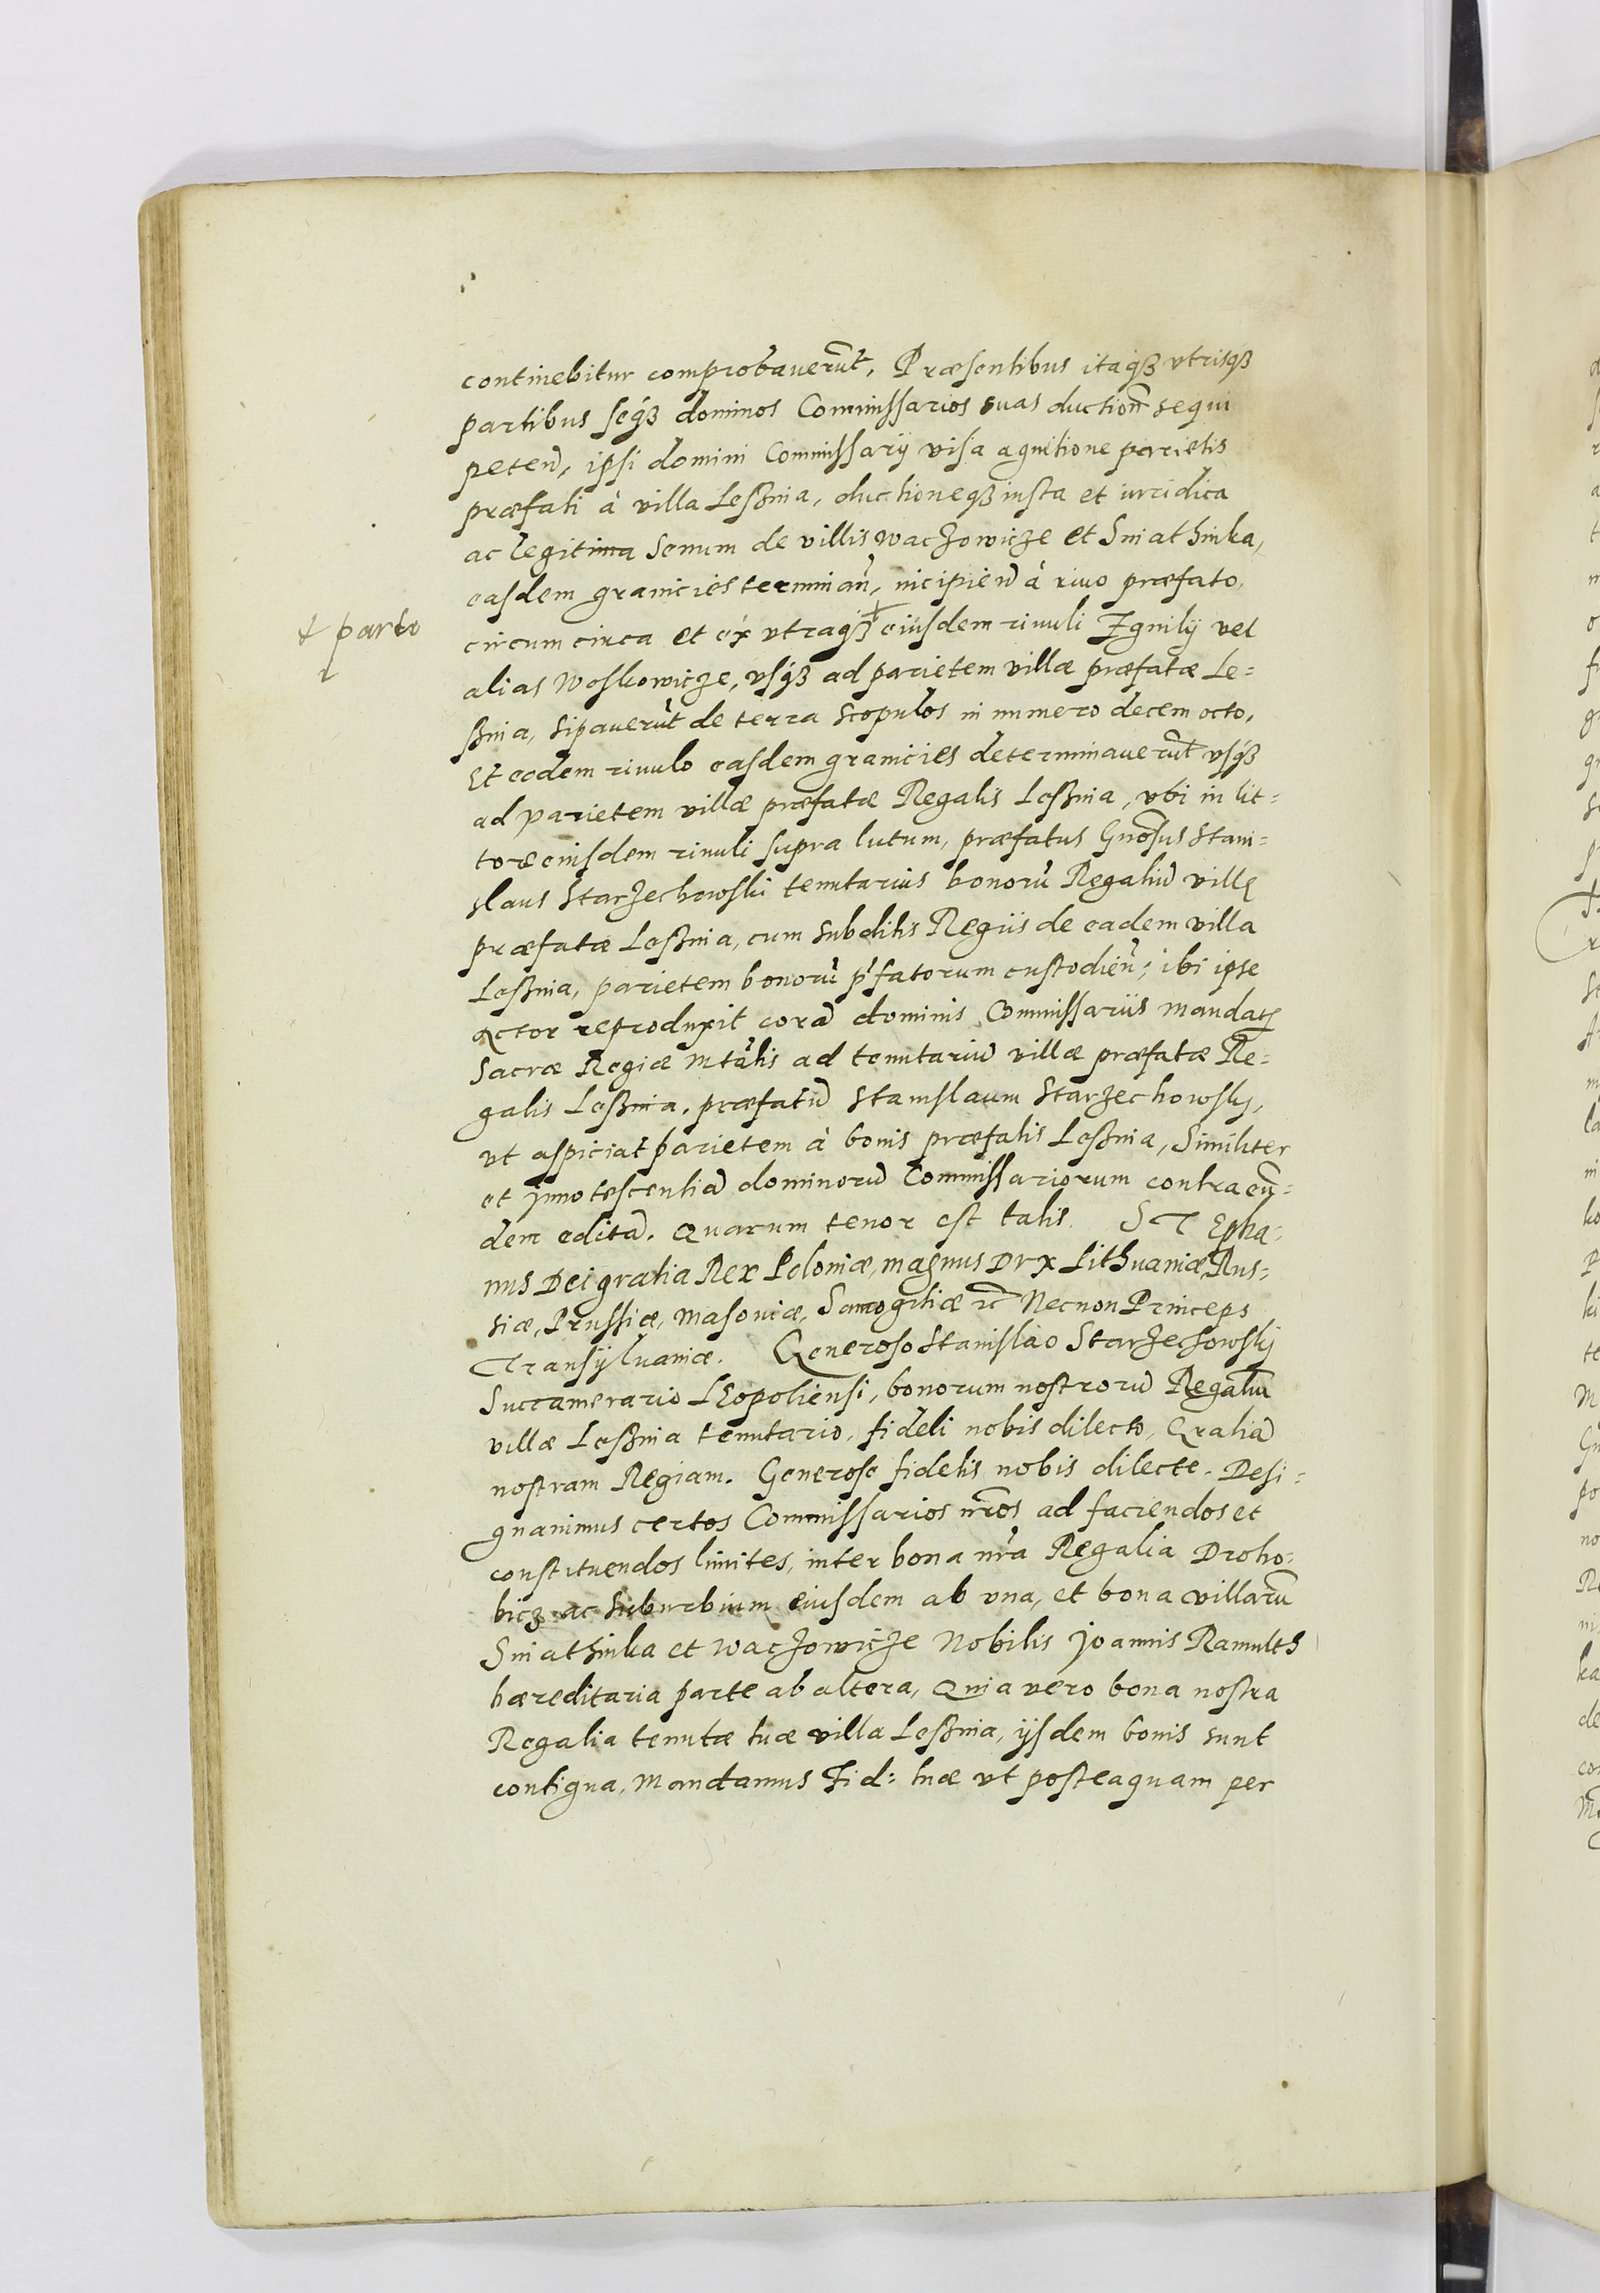 continebitur comprobauerūt, Præsentibus itaqȝ vtrisqȝ
partibus seqȝ dominos Commissarios suas duction̄ sequi
peten̄, ipsi domini Commissarij visa agnitione parietis
præfati à villa Leßnia, ductioneqȝ iusta et iuridica
ac legitima Senum de villis Waczowicze et Sniathinka,
easdem granicies terminan̄, incipien̄ à riuo præfato,
circum circa et ex vtraqȝ + eiusdem riuuli Zgnily vel
+ parte
alias Woskowicze, vsqȝ ad parietem villæ præfatæ Le=
ßnia, sipauerūt de terra scopulos in numero decem octo,
Et eodem riuulo easdem granicies determinauerūt vsqȝ
ad parietem villæ præfatæ Regalis Leßnia, vbi in lit=
tore eiusdem riuuli supra lutum, præfatus Gnōsus Stani=
slaus Starzechowski tenutarius bonorū Regaliū villę
præfatæ Leßnia, cum subditis Regiis de eadem villa
Leßnia, parietem bonorū p̄fatorum custodien̄; ibi ipse
Actor reproduxit corā dominis Commissariis mandatū
Sacræ Regiæ Mtātis ad tenutariū villæ præfatæ Re=
galis Leßnia, præfatū Stanislaum Starzechowsky,
vt aspiciat parietem à bonis præfatis Leßnia, Similiter
et ynnotescentiā dominorū Commissariorum contra eun̄=
dem editā. Quarum tenor est talis. STEpha=
nus Dei gratia Rex Poloniæ, magnus Dux Lithuaniæ, Rus=
siæ, Prussiæ, Masouiæ, Samogitiæ ꝛc̄ Necnon Princeps
Transyluaniæ. Generoso Stanislao Starzechowsky
Succamerario LEopoliensi, bonorum nostrorū Regaliū
villæ Leßnia tenutario, fideli nobis dilecto, Gratiā
nostram Regiam. Generose fidelis nobis dilecte. Desi=
gnauimus certos Commissarios nr̄os ad faciendos et
constituendos limites, inter bona nr̄a Regalia Droho=
bicz ac suburbium eiusdem ab vna, et bona villarū
Sniathinka et Waczowicze Nobilis Joannis Ramulth
hæreditaria parte ab altera, Quia vero bona nostra
Regalia tenutæ tuæ villa Leßnia, ijsdem bonis sunt
contigua, Mandamus Fid: tuæ vt posteaquam per